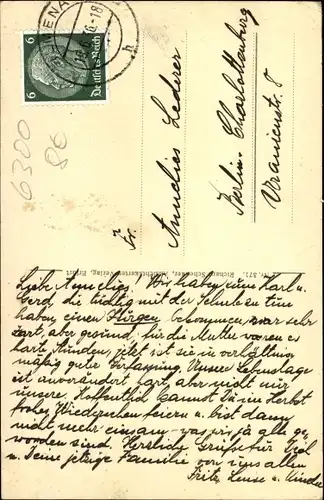 ILMENAU
6-18
h
6 6
Deutsches Reich
6300
80
Fr.
Annelies Lederer
Berlin, Charlottenburg
Uranienstr. 8
Richard Verlag, Erfurt
Liebe Annelies! Wir haben zum Karl u.
Gerd, die tüchtig mit der Schule zu tun
haben einen Jürgen bekommen, zwar sehr
zart, aber gesund, für die Mutter waren es
harte Stunden, jetzt ist sie in verhältnis-
mäßig guter Verfassung. Unsere Lebenslage
ist unverändert hart, aber nicht nur
unsere. Hoffentlich kannst Du im Herbst
frohes Wiedersehen feiern u. bist dann
nicht mehr einsam - was wir ja alle ge-
worden sind. Herzliche Grüße für Dich
u. Deine jetzige Familie von uns allen
Fritz, Luise u. Kinder